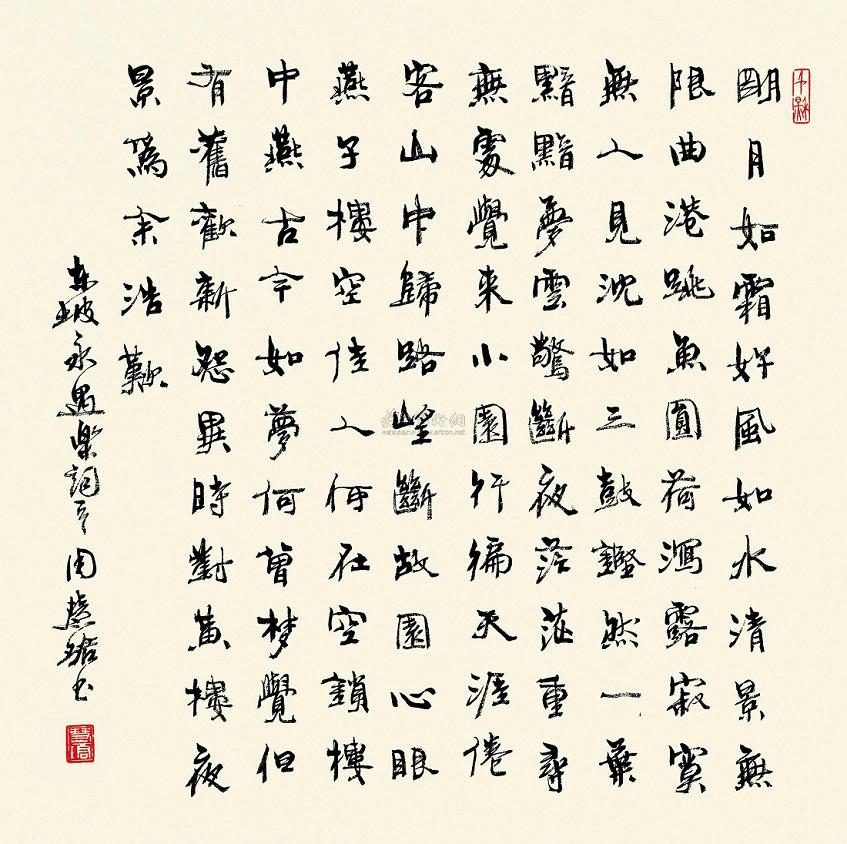 明月如霜好風如水清景無
限曲港跳魚圓荷瀉露寂寞
無人見沈如三鼓鏗然一葉
黯黯夢雲驚斷夜茫茫重尋
無處覺來小園行徧天涯倦
客山中歸路望斷故園心眼
燕子樓空佳人何在空鎖樓
中燕古今如夢何曾梦覺但
有舊歡新怨異時對黃樓夜
景為余浩歎
东坡永遇樂詞 周慧珺书